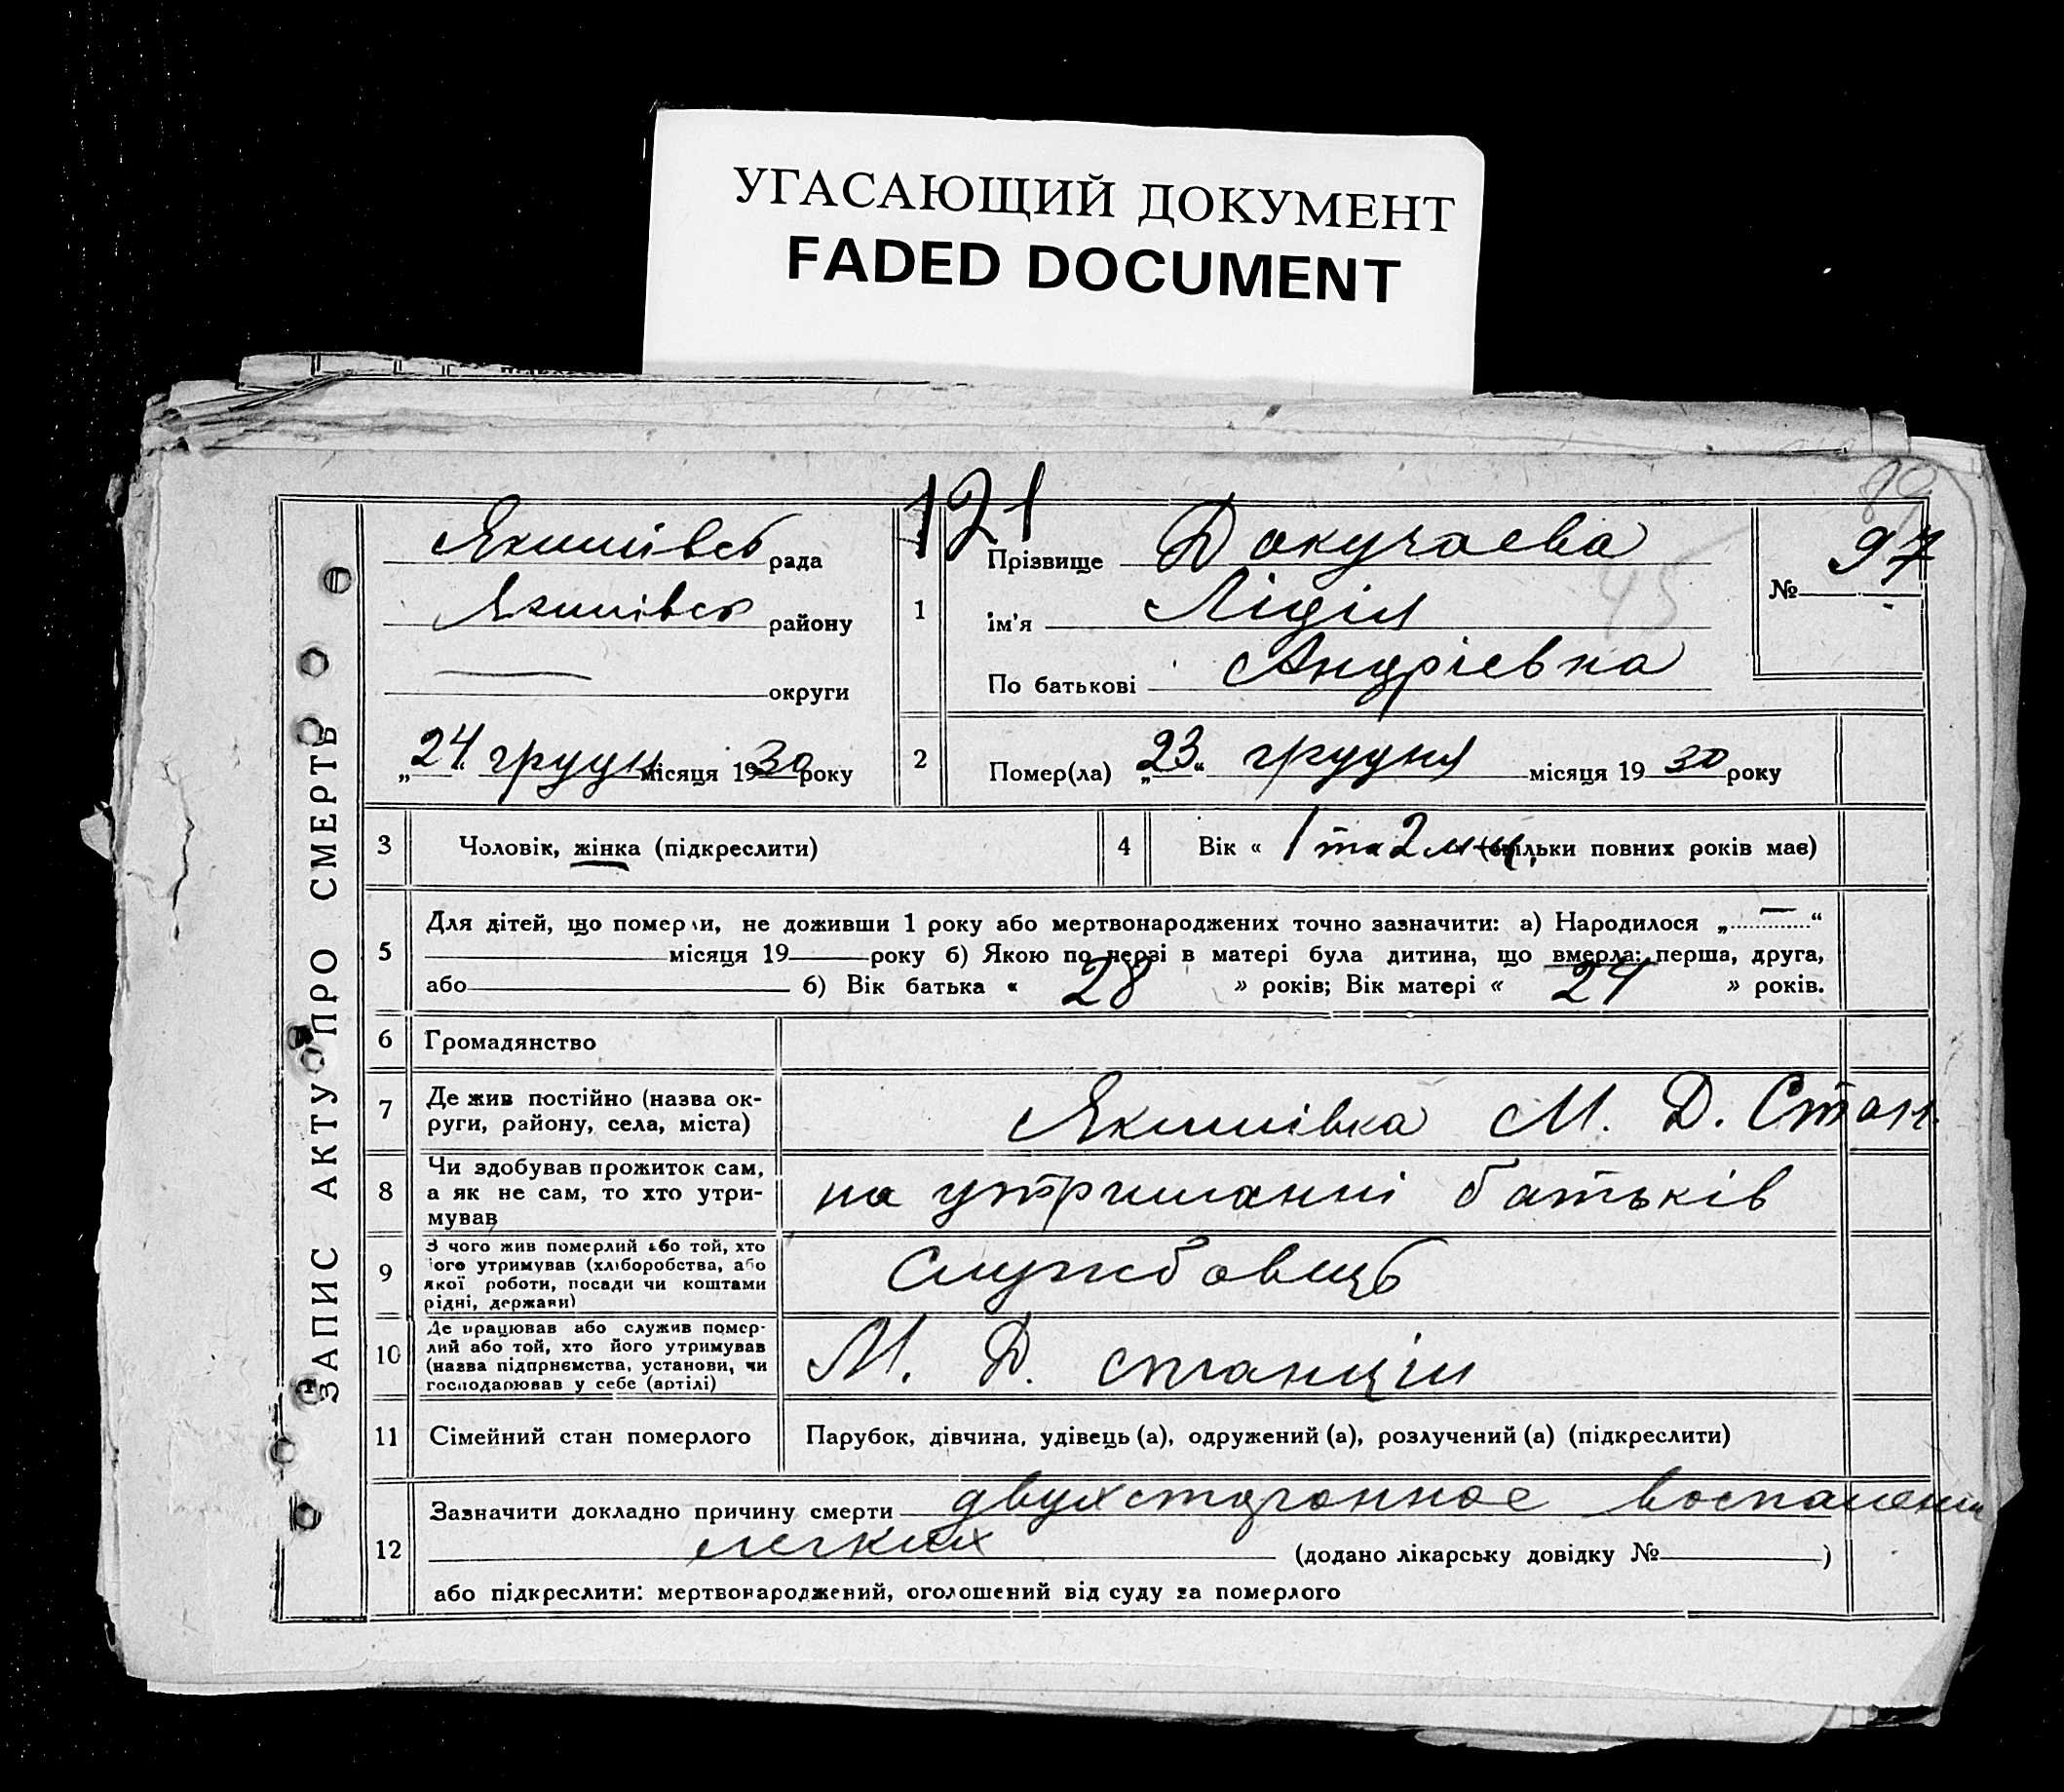 УГАСАЮЩИЙ ДОКУМЕНТ
FADED DOCUMENT
ЗАПИС АКТУ ПРО СМЕРТЬ
121
Якимівсь рада
Якимівсь району
округи
„24“ грудн місяця 1930 року
1
Прізвище Докучаева
ім'я Лідія
По батькові Андріевна
№ 97
45
2 Помер(ла) „23“ грудня місяця 1930 року
3 Чоловік, жінка (підкреслити)
4 Вік « 1 та 2 міц. (скільки повних років має)
5 Для дітей, що померли, не доживши 1 року або мертвонароджених точно зазначити: а) Народилося „—“
місяця 19 року б) Якою по черзі в матері була дитина, що вмерла: перша, друга,
або б) Вік батька « 28 » років; Вік матері « 24 » років.
6 Громадянство
7 Де жив постійно (назва ок-
руги, району, села, міста)
Якимівка М. Д. Стан.
8 Чи здобував прожиток сам,
а як не сам, то хто утри-
мував
на утриманні батьків
9 З чого жив померлий або той, хто
його утримував (хліборобства, або
якої роботи, посади чи коштами
рідні, держави)
Службовець
10 Де працював або служив помер-
лий або той, хто його утримував
(назва підприємства, установи, чи
господарював у себе (артілі)
М. Д. станціи
11 Сімейний стан померлого
Парубок, дівчина, удівець (а), одружений (а), розлучений (а) (підкреслити)
12 Зазначити докладно причину смерти двухсторонное воспалени
легких (додано лікарську довідку № )
або підкреслити: мертвонароджений, оголошений від суду за померлого